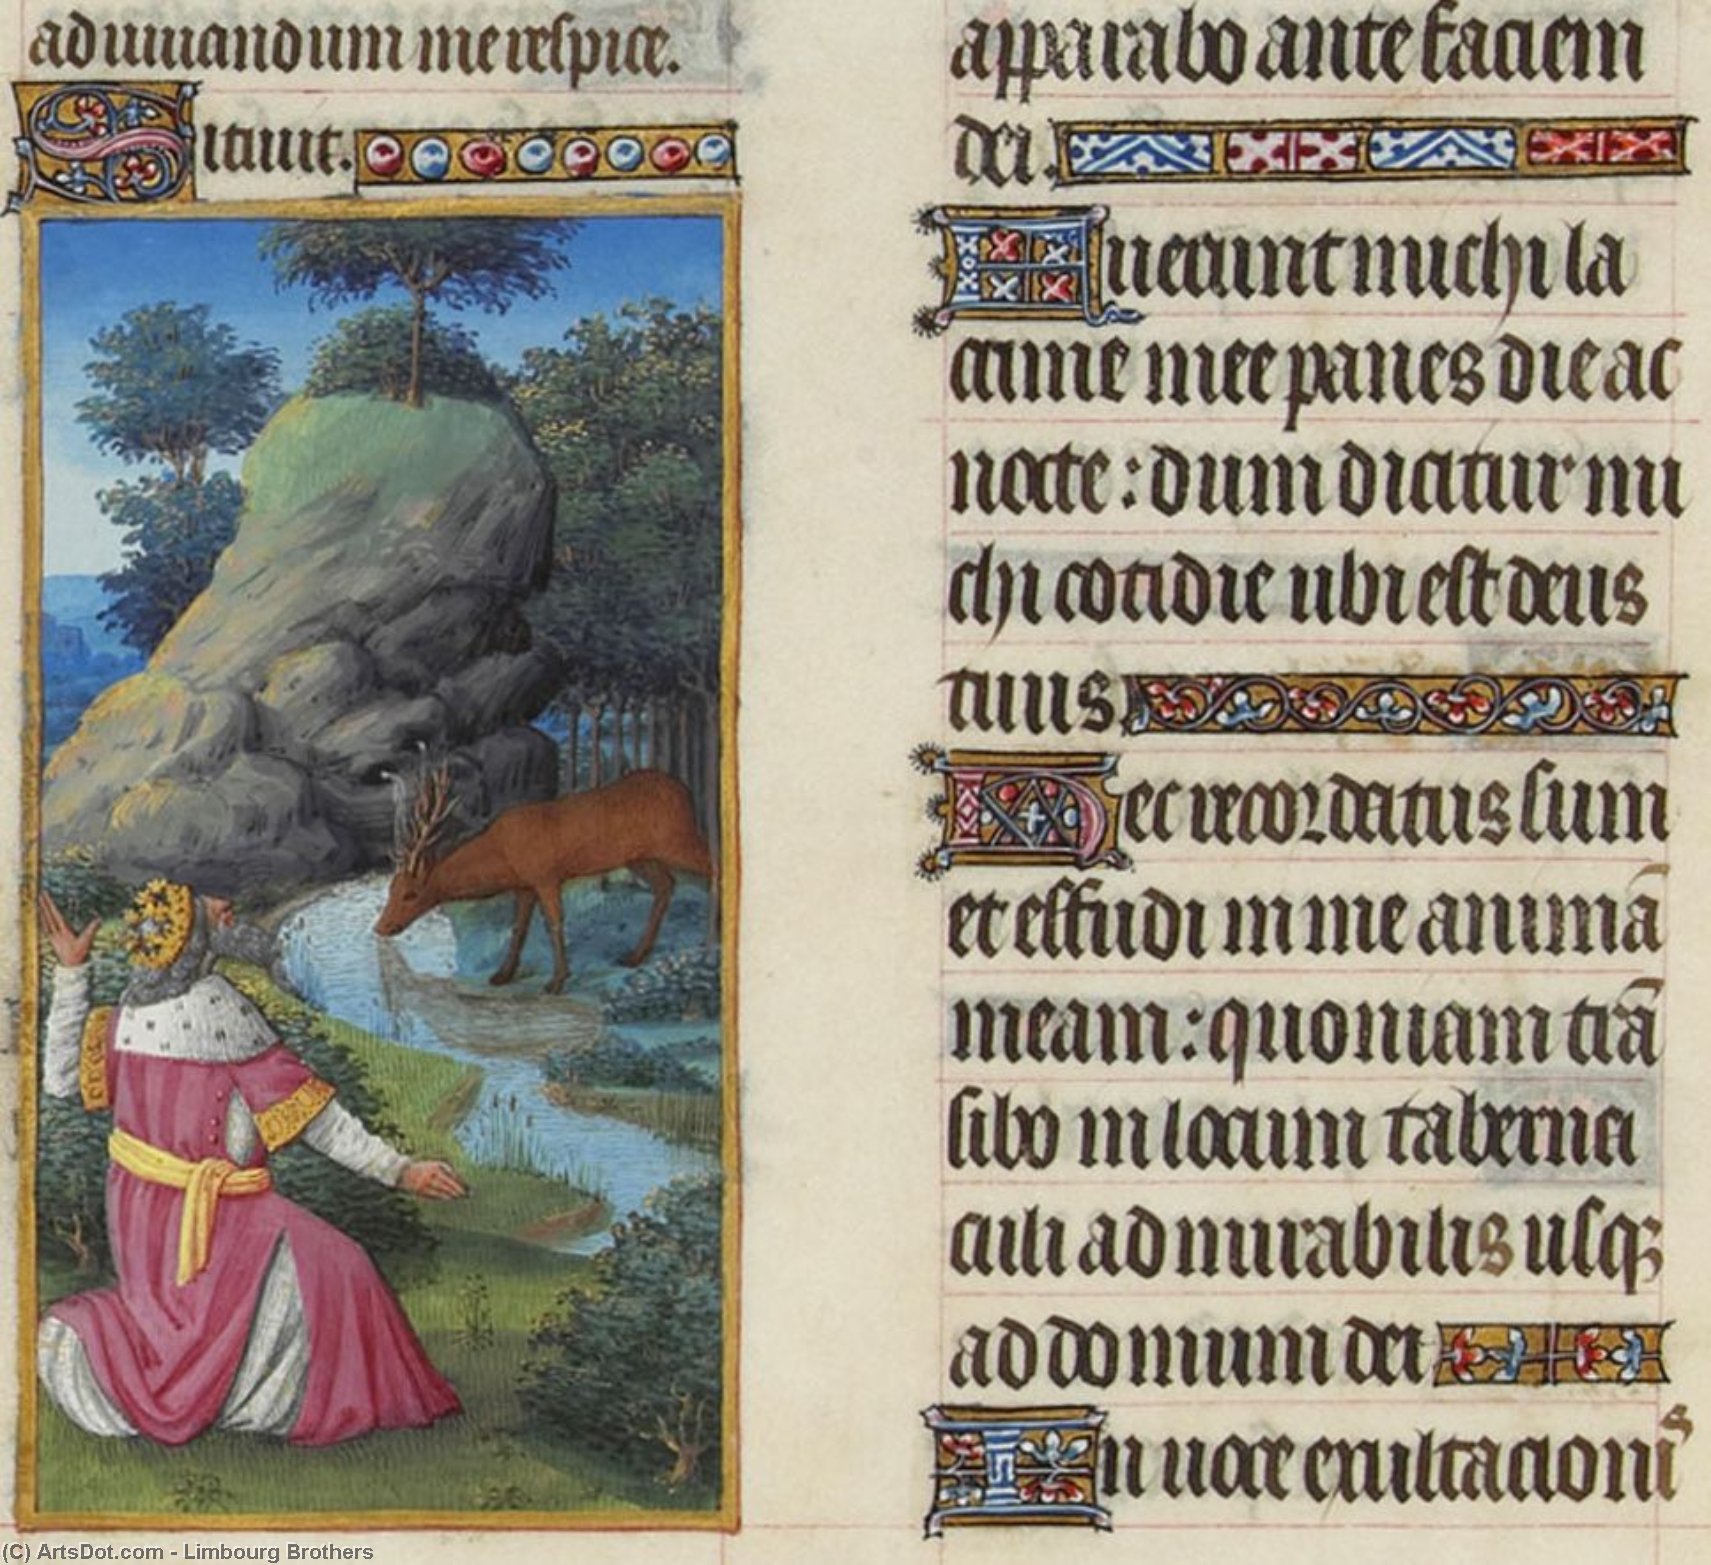 ad iuuandum me respice.
Sitiuit.
apparabo ante faciem
dei.
Fuerunt michi la
crime mee panes die ac
nocte: dum dicitur mi
chi cotidie ubi est deus
tuus.
Hec recordatus sum
et effudi in me animā
meam: quoniam trā
sibo in locum taberna
culi admirabilis usq;
ad domum dei
In uoce exultacionis
(C) ArtsDot.com - Limbourg Brothers